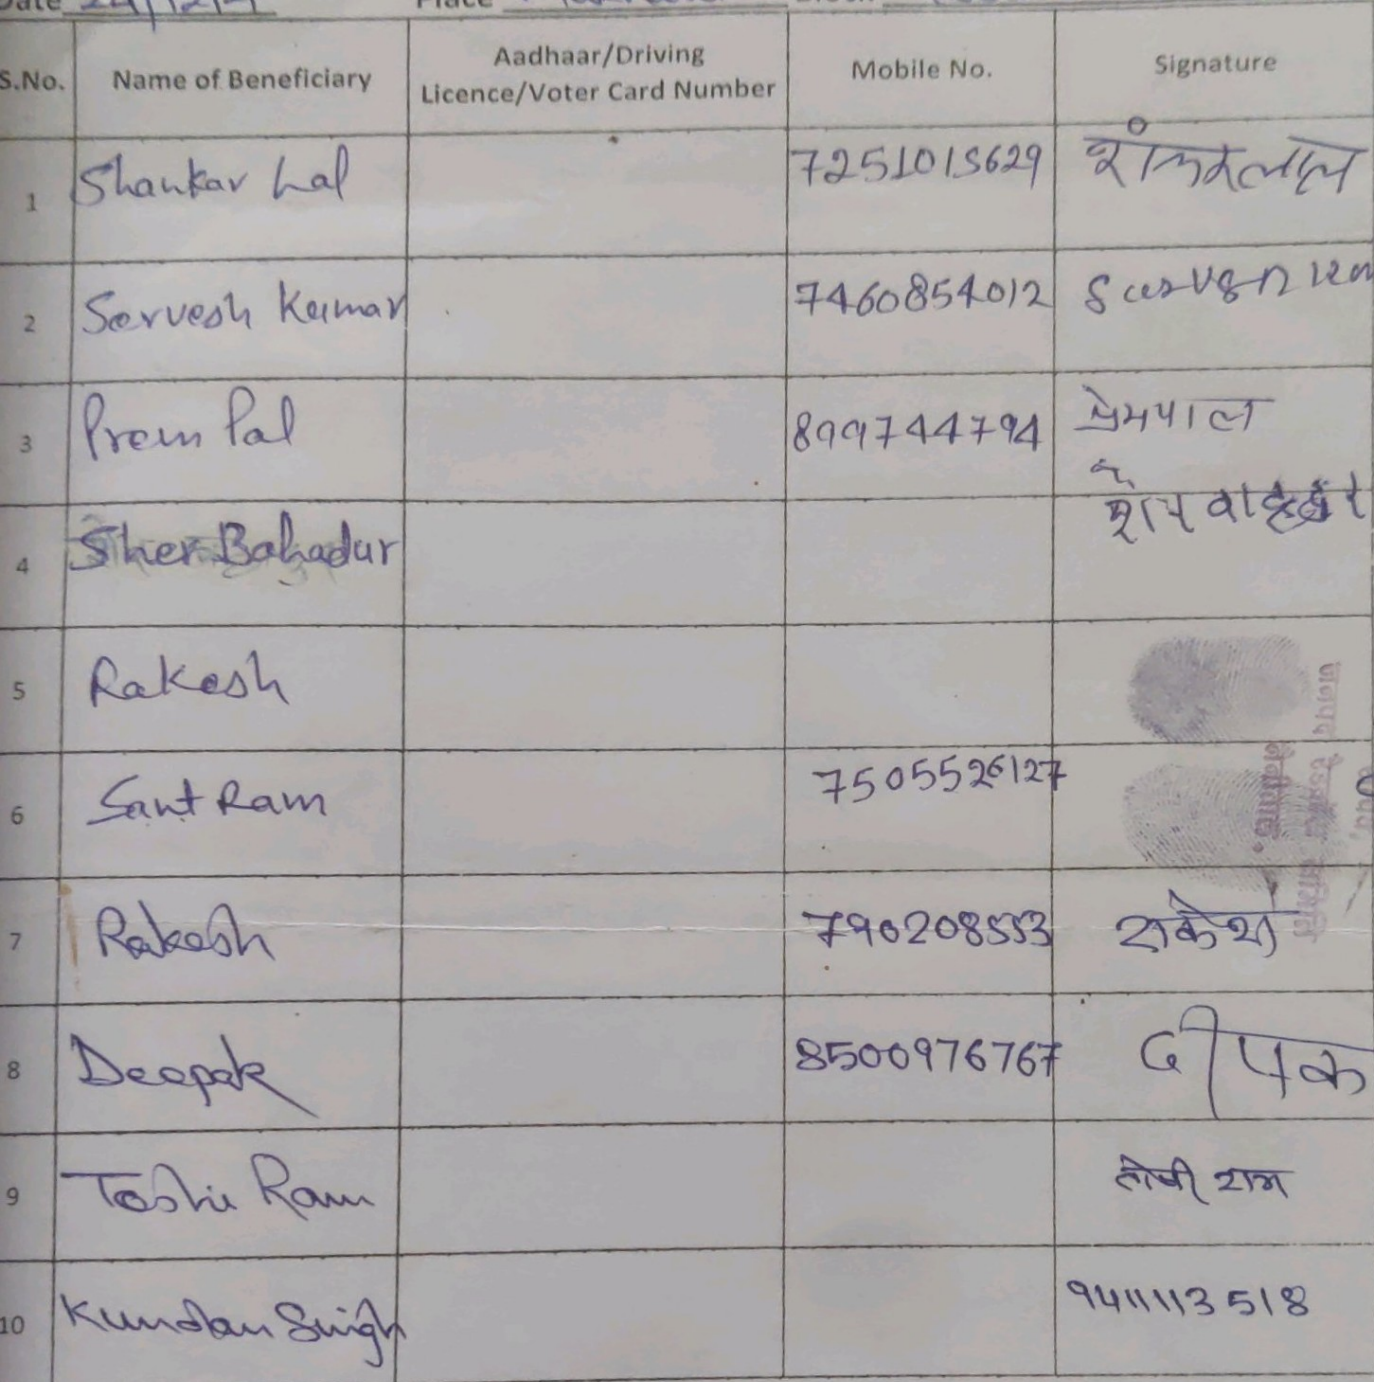 Date 24/12/2
Place
S.No. Name of Beneficiary Aadhaar/Driving Licence/Voter Card Number Mobile No. Signature
1 Shankar Lal 7251015629 शंकरलाल
2 Sarvesh Kumar 7460854012
3 Prem Pal 899744794 प्रेमपाल
4 Sher Bahadur
5 Rakesh
6 Sant Ram 7505526127
7 Rakesh 790208553 राकेश
8 Deepak 8500976767 दीपक
9 Toshi Ram तोषी राम
10 Kundan Singh 9411113518